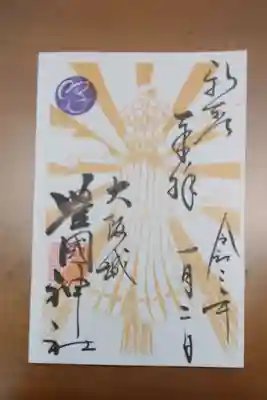 奉拝
令和三年
一月二日
大阪城
豊國神社